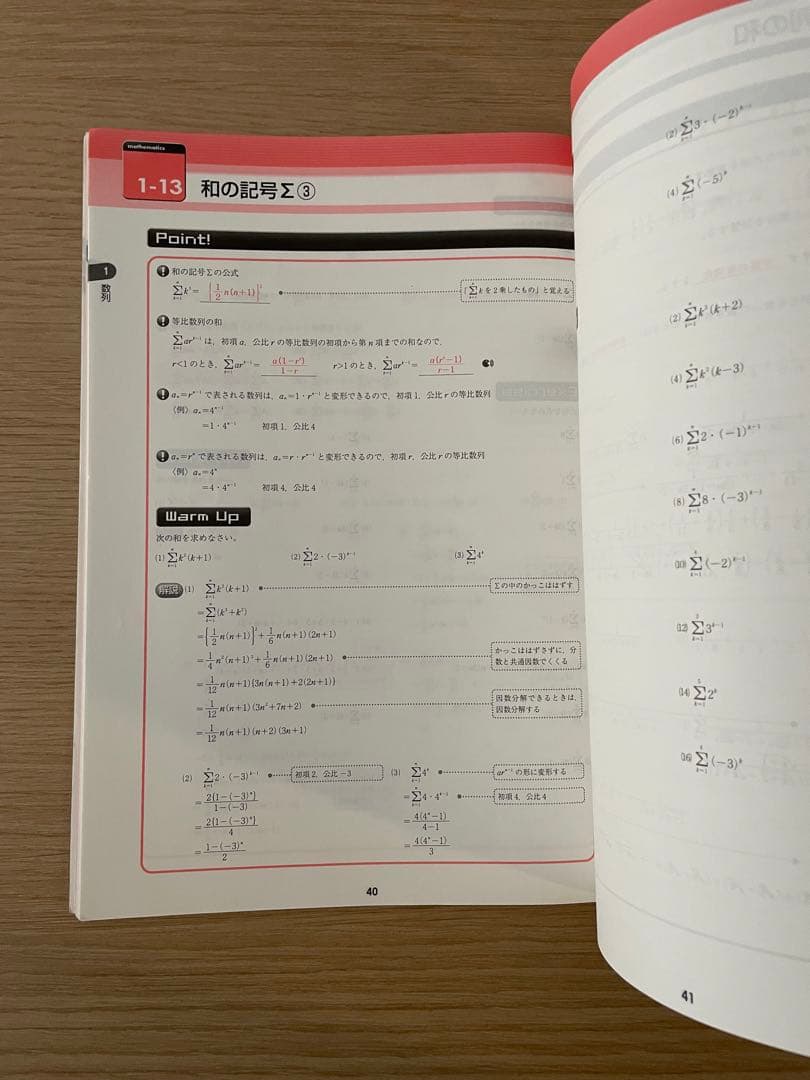 mathematics
1-13 和の記号Σ③
Point!
1
数列
! 和の記号Σの公式
$\sum_{k=1}^{n}k^3=\left\{\frac{1}{2}n(n+1)\right\}^2$ 「$\sum_{k=1}^{n}k$を2乗したもの」と覚える
! 等比数列の和
$\sum_{k=1}^{n}ar^{k-1}$は、初項a、公比rの等比数列の初項から第n項までの和なので、
r<1のとき、$\sum_{k=1}^{n}ar^{k-1}=\frac{a(1-r^n)}{1-r}$ r>1のとき、$\sum_{k=1}^{n}ar^{k-1}=\frac{a(r^n-1)}{r-1}$
! $a_n=r^{n-1}$で表される数列は、$a_n=1・r^{n-1}$と変形できるので、初項1、公比rの等比数列
〈例〉$a_n=4^{n-1}$
$=1・4^{n-1}$ 初項1、公比4
! $a_n=r^n$で表される数列は、$a_n=r・r^{n-1}$と変形できるので、初項r、公比rの等比数列
〈例〉$a_n=4^n$
$=4・4^{n-1}$ 初項4、公比4
Warm Up
次の和を求めなさい。
(1) $\sum_{k=1}^{n}k^2(k+1)$ (2) $\sum_{k=1}^{n}2・(-3)^{k-1}$ (3) $\sum_{k=1}^{n}4^k$
解説 (1) $\sum_{k=1}^{n}k^2(k+1)$ Σの中のかっこははずす
$=\sum_{k=1}^{n}(k^3+k^2)$
$=\left\{\frac{1}{2}n(n+1)\right\}^2+\frac{1}{6}n(n+1)(2n+1)$
$=\frac{1}{4}n^2(n+1)^2+\frac{1}{6}n(n+1)(2n+1)$ かっこははずさずに、分
数と共通因数でくくる
$=\frac{1}{12}n(n+1)\{3n(n+1)+2(2n+1)\}$
$=\frac{1}{12}n(n+1)(3n^2+7n+2)$ 因数分解できるときは、
因数分解する
$=\frac{1}{12}n(n+1)(n+2)(3n+1)$
(2) $\sum_{k=1}^{n}2・(-3)^{k-1}$ 初項2、公比-3
$=\frac{2\{1-(-3)^n\}}{1-(-3)}$
$=\frac{2\{1-(-3)^n\}}{4}$
$=\frac{1-(-3)^n}{2}$
(3) $\sum_{k=1}^{n}4^k$ $ar^{k-1}$の形に変形する
$=\sum_{k=1}^{n}4・4^{k-1}$ 初項4、公比4
$=\frac{4(4^n-1)}{4-1}$
$=\frac{4(4^n-1)}{3}$
40
(2) $\sum_{k=1}^{n}3・(-2)^{k-1}$
(4) $\sum_{k=1}^{n}(-5)^k$
(2) $\sum_{k=1}^{n}k^2(k+2)$
(4) $\sum_{k=1}^{n}k^2(k-3)$
(6) $\sum_{k=1}^{n}2・(-1)^{k-1}$
(8) $\sum_{k=1}^{n}8・(-3)^{k-1}$
(10) $\sum_{k=1}^{n}(-2)^{k-1}$
(12) $\sum_{k=1}^{5}3^{k-1}$
(14) $\sum_{k=1}^{5}2^k$
(16) $\sum_{k=1}^{4}(-3)^k$
41